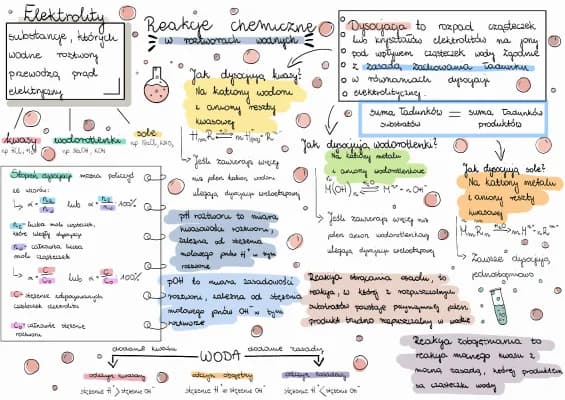 Elektrolity
substancje, których
wodne roztwory
przewodzą prąd
elektryczny
kwasy
wodorotlenki
sole
np. NaOH, KOH
Reakcje chemiczne
w roztworach wodnych
Dysocjacja to rozpad cząsteczek
lub kryształów elektrolitów na jony
pod wpływem cząsteczek wody zgodnie
z zasadą zachowania ładunku
w równaniach dysocjacji
elektrolitycznej.
suma ładunków substratów = suma ładunków produktów
Jak dysocjują kwasy?
Na kationy wodoru
i aniony reszty
kwasowej
Jeśli zawierają więcej
niż jeden kation wodoru
ulegają dysocjacji wielostopniowej
Jak dysocjują wodorotlenki?
Na kationy metalu
i aniony wodorotlenkowe
Jeśli zawierają więcej niż
jeden anion wodorotlenkowy
ulegają dysocjacji wielostopniowej
Jak dysocjują sole?
Na kationy metalu
i aniony reszty
kwasowej
Zawsze dysocjują
jednostopniowo
Stopień dysocjacji można policzyć
ze wzorów:
lub
100%
liczba moli cząsteczek,
które uległy dysocjacji
całkowita liczba
moli cząsteczek
lub
100%
stężenie zdysocjowanych
cząsteczek elektrolitu
całkowite stężenie
roztworu
pH roztworu to miara
kwasowości roztworu,
zależna od stężenia
molowego jonów H⁺ w tym
roztworze
pOH to miara zasadowości
roztworu, zależna od stężenia
molowego jonów OH⁻ w tym
roztworze
Reakcja strącania osadu, to
reakcja, w której z rozpuszczalnych
substratów powstaje przynajmniej jeden
produkt trudno rozpuszczalny w wodzie
Reakcja zobojętniania to
reakcja mocnego kwasu z
mocną zasadą, której produktem
są cząsteczki wody
dodanie kwasu
WODA
dodanie zasady
odczyn kwasowy
odczyn obojętny
odczyn zasadowy
stężenie H⁺ > stężenie OH⁻
stężenie H⁺ = stężenie OH⁻
stężenie H⁺ < stężenie OH⁻